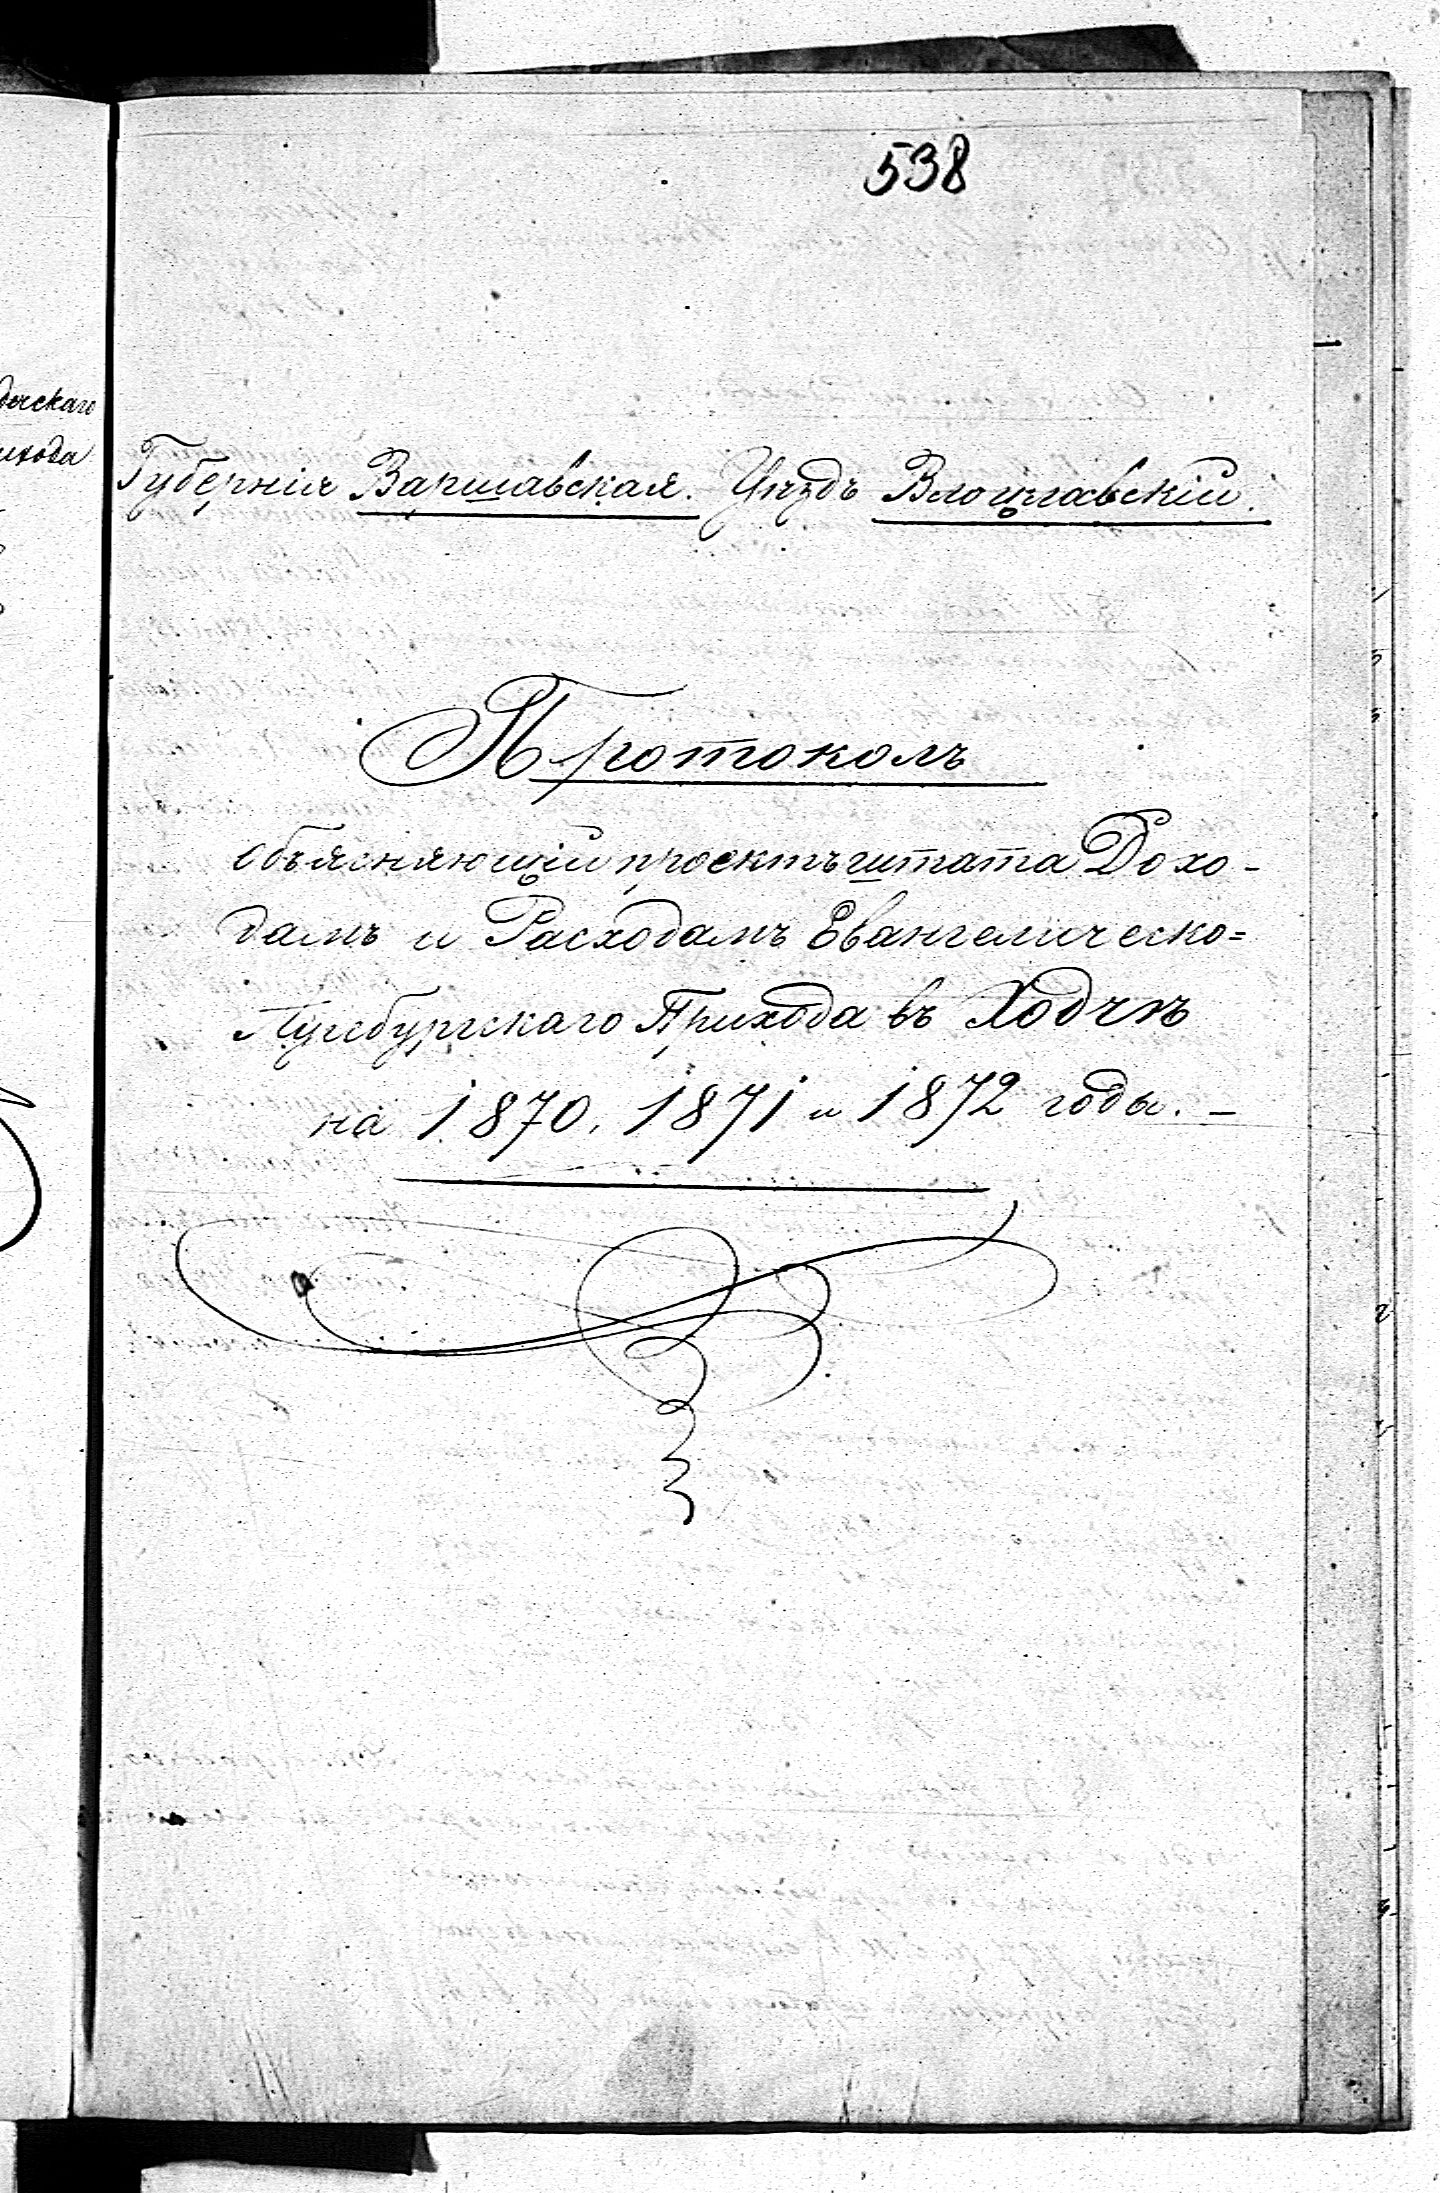 538
Губернія Варшавская. Уѣздъ Влоцлавскій.
Протоколъ
объясняющій проектъ штата Дохо-
дамъ и Расходамъ Евангелическо=
Аугсбургскаго Прихода въ Ходчѣ
на 1870, 1871 и 1872 годы. —